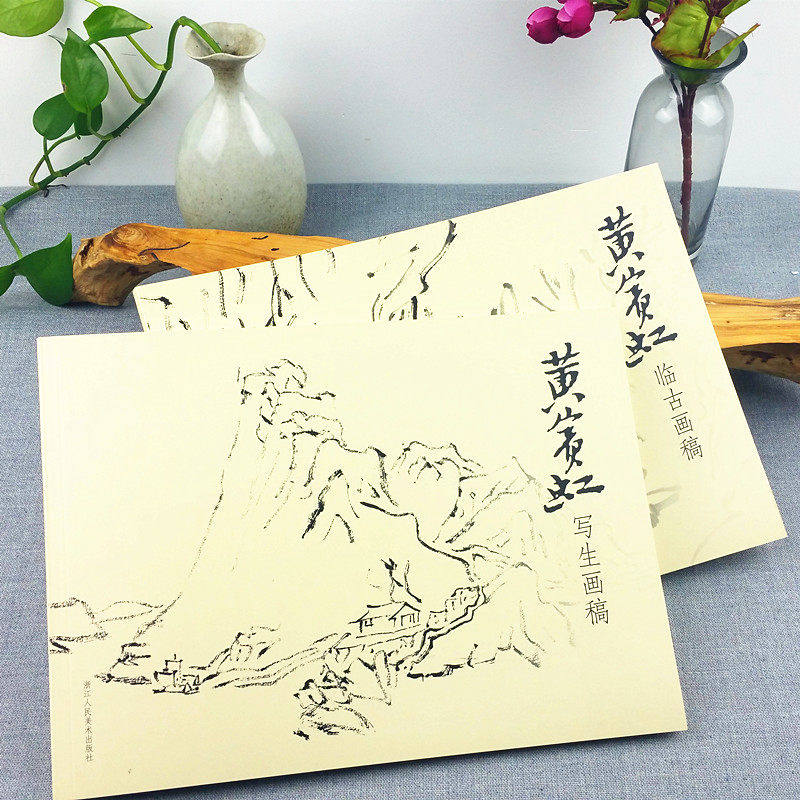 黄宾虹
写生画稿
浙江人民美术出版社
黄宾虹
临古画稿